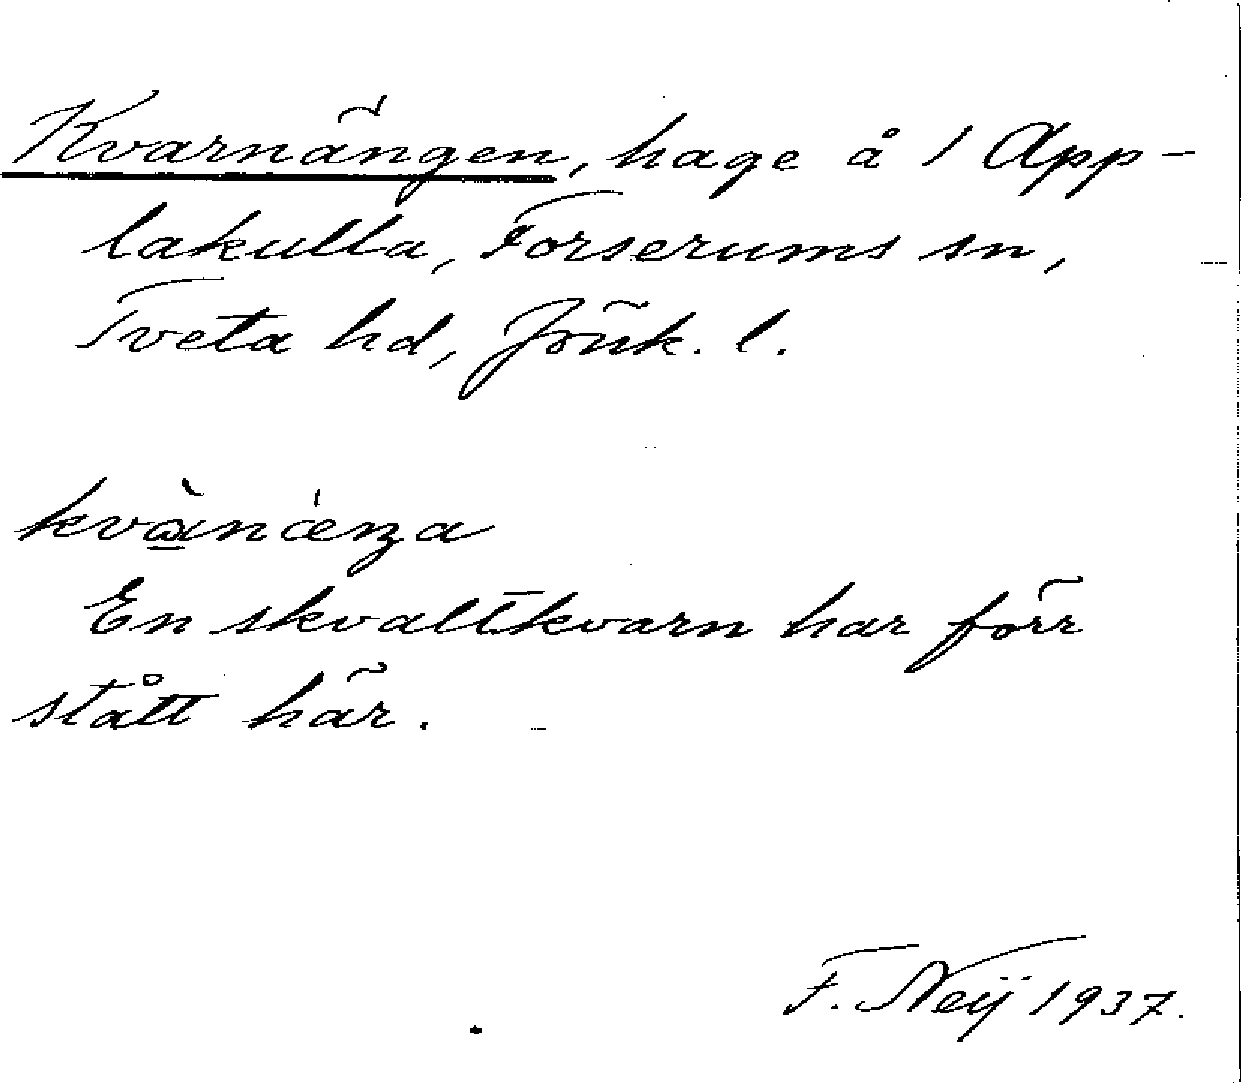 Kvarnängen, hage å 1 App-
lakulla, Forserums sn,
Tveta hd, Jönk. l.
En skvaltkvarn har förr
stått här.
F. Neij 1937.